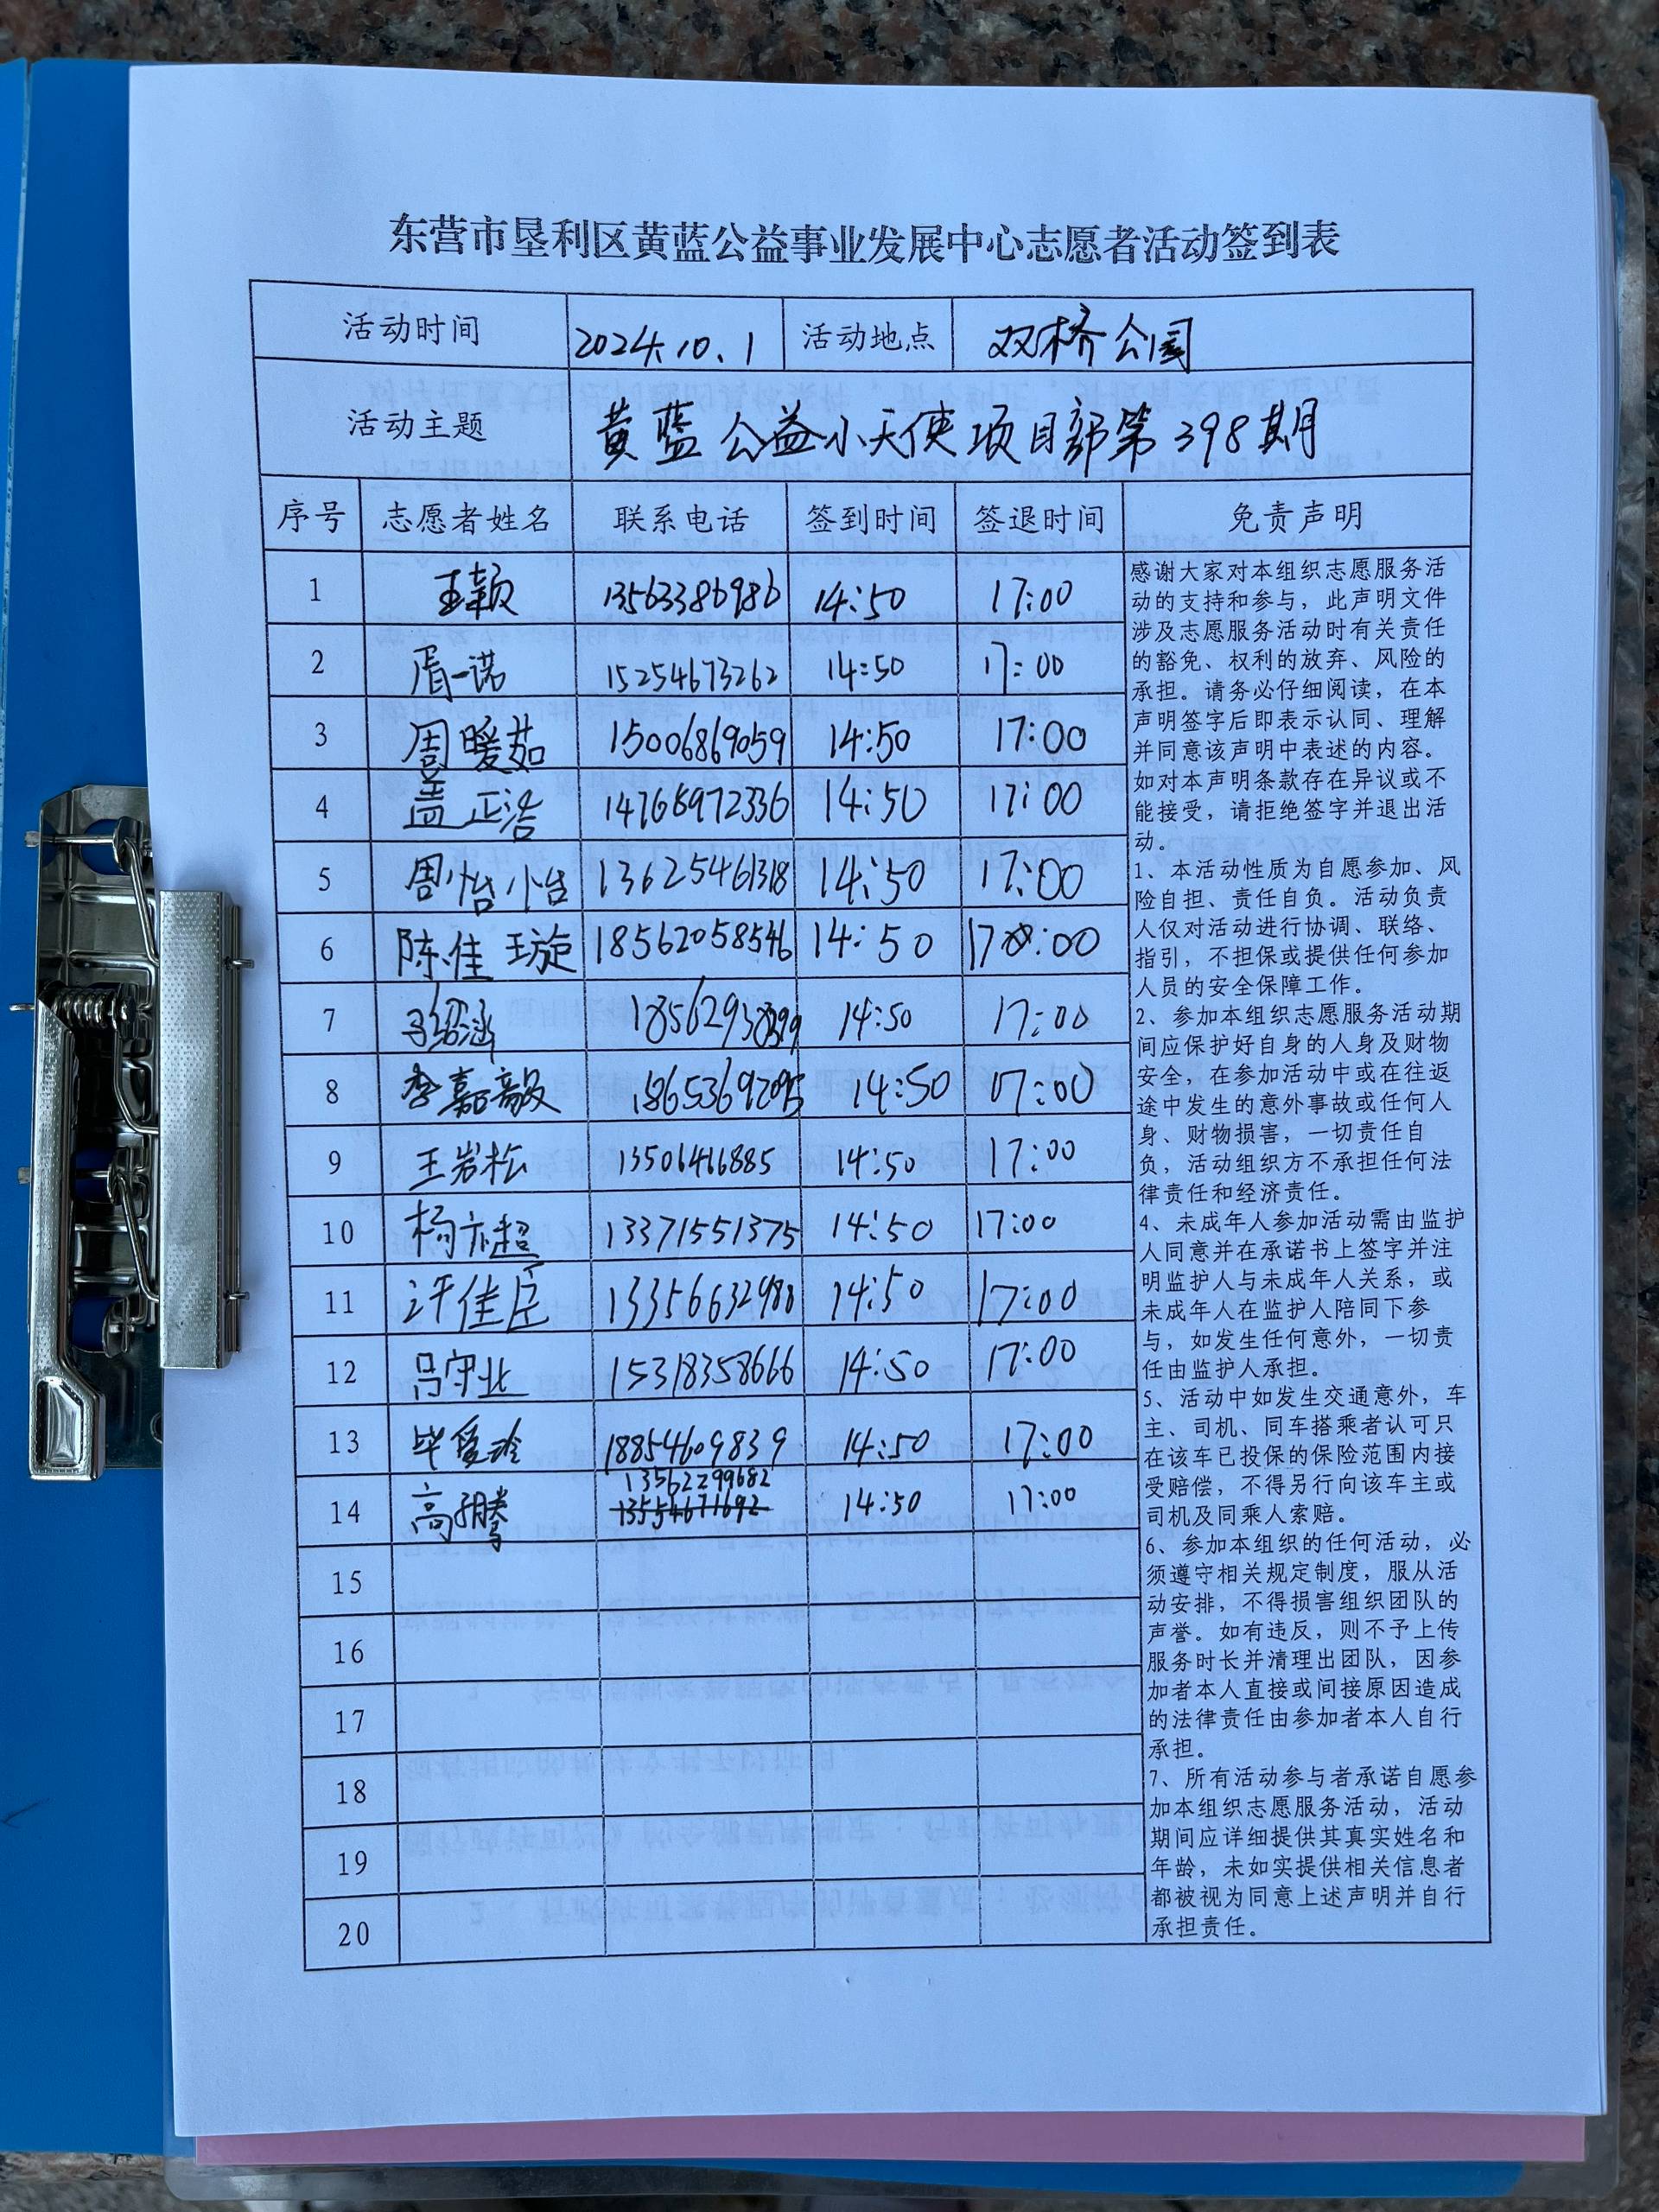 东营市垦利区黄蓝公益事业发展中心志愿者活动签到表
活动时间 2024.10.1 活动地点 双桥公园
活动主题 黄蓝公益小天使项目部第398期
序号 志愿者姓名 联系电话 签到时间 签退时间 免责声明
1 王颖 13563386986 14:50 17:00
2 胥一诺 15254673262 14:50 17:00
3 周暖茹 15006869059 14:50 17:00
4 盖正浩 14768972336 14:50 17:00
5 周怡怡 13625461318 14:50 17:00
6 陈佳璇 18562058546 14:50 17:00
7 14:50 17:00
8 李嘉毅 14:50 07:00
9 王岩松 13506466885 14:50 17:00
10 杨亦超 13371551375 14:50 17:00
11 许佳臣 13356632988 14:50 17:00
12 吕守业 15318358666 14:50 17:00
13 毕爱玲 18854609839 14:50 17:00
13562299682
14 高子腾 13554671692 14:50 17:00
15
16
17
18
19
20
感谢大家对本组织志愿服务活
动的支持和参与，此声明文件
涉及志愿服务活动时有关责任
的豁免、权利的放弃、风险的
承担。请务必仔细阅读，在本
声明签字后即表示认同、理解
并同意该声明中表述的内容。
如对本声明条款存在异议或不
能接受，请拒绝签字并退出活
动。
1、本活动性质为自愿参加、风
险自担、责任自负。活动负责
人仅对活动进行协调、联络、
指引，不担保或提供任何参加
人员的安全保障工作。
2、参加本组织志愿服务活动期
间应保护好自身的人身及财物
安全，在参加活动中或在往返
途中发生的意外事故或任何人
身、财物损害，一切责任自
负，活动组织方不承担任何法
律责任和经济责任。
4、未成年人参加活动需由监护
人同意并在承诺书上签字并注
明监护人与未成年人关系，或
未成年人在监护人陪同下参
与，如发生任何意外，一切责
任由监护人承担。
5、活动中如发生交通意外，车
主、司机、同车搭乘者认可只
在该车已投保的保险范围内接
受赔偿，不得另行向该车主或
司机及同乘人索赔。
6、参加本组织的任何活动，必
须遵守相关规定制度，服从活
动安排，不得损害组织团队的
声誉。如有违反，则不予上传
服务时长并清理出团队，因参
加者本人直接或间接原因造成
的法律责任由参加者本人自行
承担。
7、所有活动参与者承诺自愿参
加本组织志愿服务活动，活动
期间应详细提供其真实姓名和
年龄，未如实提供相关信息者
都被视为同意上述声明并自行
承担责任。